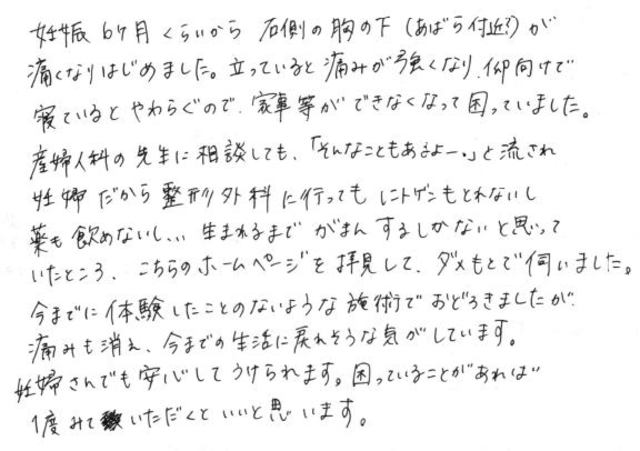 妊娠6ヶ月くらいから 右側の胸の下(あばら付近?)が
痛くなりはじめました。立っていると痛みが強くなり、仰向けで
寝ているとやわらぐので、家事等ができなくなって困っていました。
産婦人科の先生に相談しても、「そんなこともあるよー。」と流され
妊婦だから整形外科に行ってもレントゲンもとれないし
薬も飲めないし... 生まれるまでがまんするしかないと思って
いたところ、こちらのホームページを拝見して、ダメもとで伺いました。
今までに体験したことのないような施術でおどろきましたが
痛みも消え、今までの生活に戻れそうな気がしています。
妊婦さんでも安心してうけられます。困っていることがあれば
1度みていただくといいと思います。